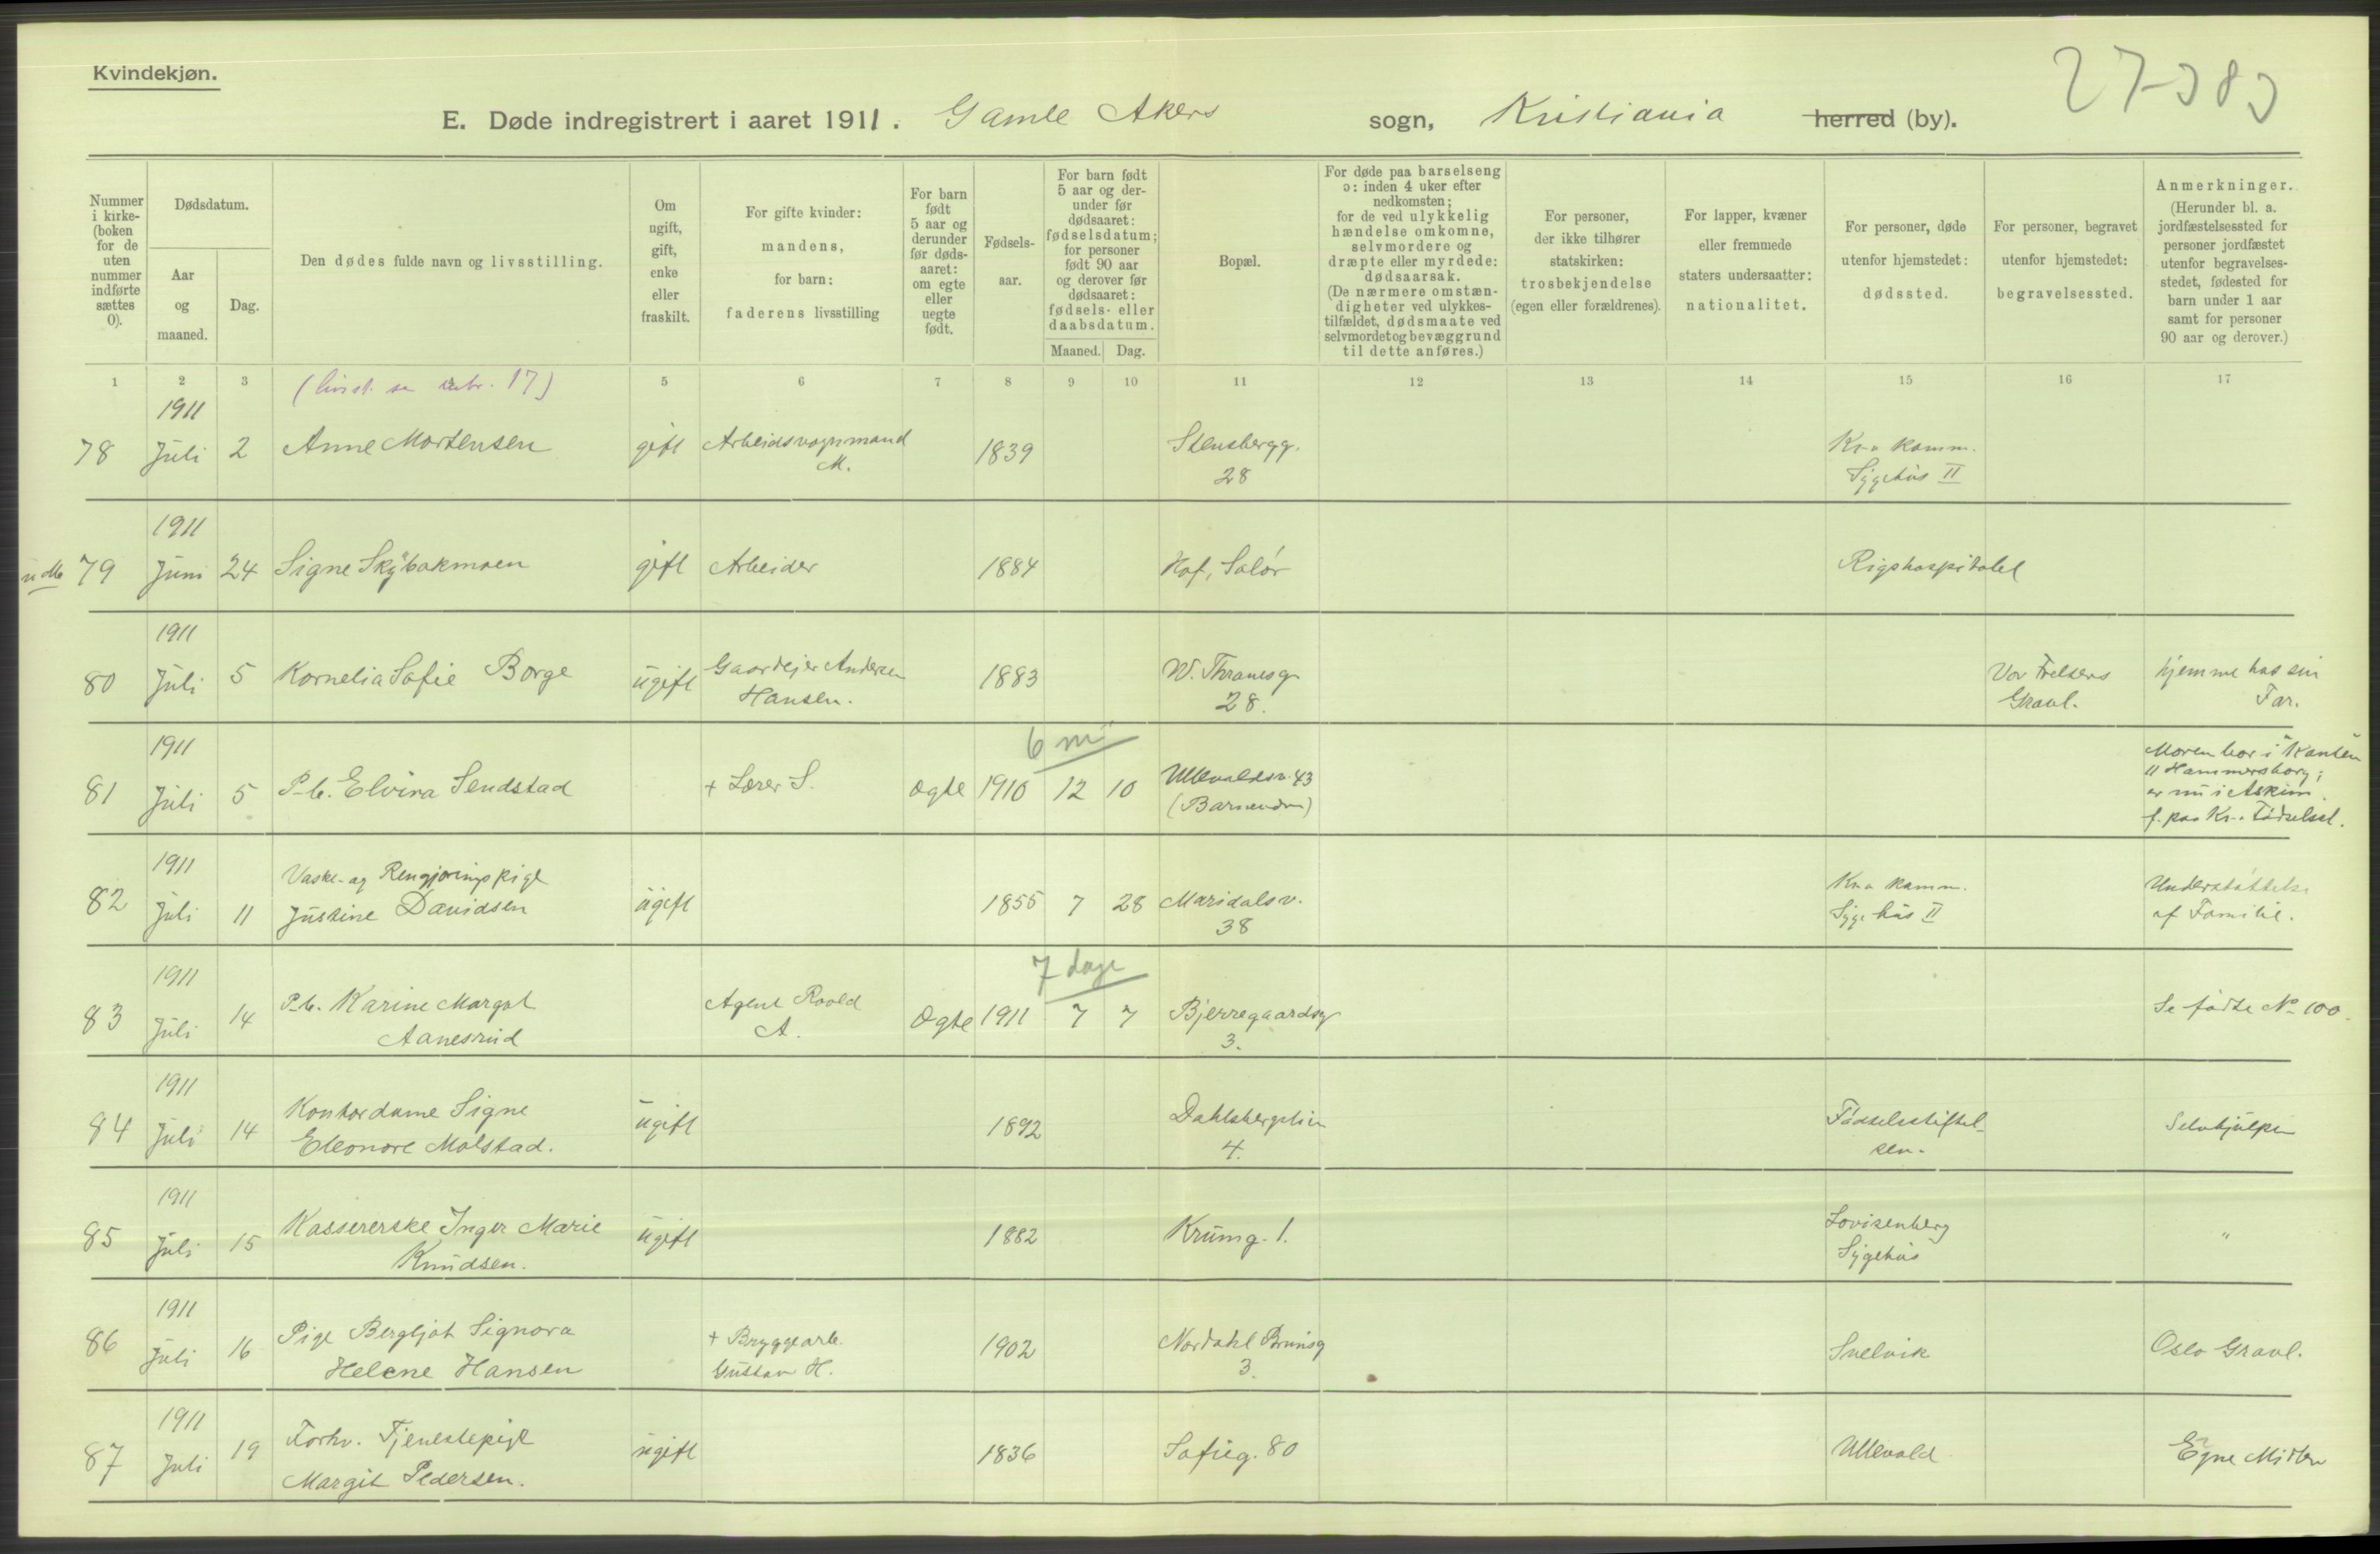 Kvindekjøn.
27-383
E. Døde indregistrert i aaret 1911. Gamle Akers sogn, Kristiania herred (by).
Nummer i kirke- (boken for de uten nummer indførte sættes 0).
Dødsdatum.
Aar og maaned.
Dag.
Den dødes fulde navn og livsstilling.
Om ugift, gift, enke eller fraskilt.
For gifte kvinder: mandens, for barn: faderens livsstilling
For barn født 5 aar og derunder før døds- aaret: om egte eller uegte født.
Fødsels- aar.
For barn født 5 aar og der- under før dødsaaret: fødselsdatum; for personer født 90 aar og derover før dødsaaret: fødsels- eller daabsdatum.
Maaned. Dag.
Bopæl.
For døde paa barselseng ɔ: inden 4 uker efter nedkomsten; for de ved ulykkelig hændelse omkomne, selvmordere og dræpte eller myrdede: dødsaarsak. (De nærmere omstæn- digheter ved ulykkes- tilfældet, dødsmaate ved selvmordet og bevæggrund til dette anføres.)
For personer, der ikke tilhører statskirken: trosbekjendelse (egen eller forældrenes).
For lapper, kvæner eller fremmede staters undersaatter: nationalitet.
For personer, døde utenfor hjemstedet: dødssted.
For personer, begravet utenfor hjemstedet: begravelsessted.
Anmerkninger. (Herunder bl. a. jordfæstelsessted for personer jordfæstet utenfor begravelses- stedet, fødested for barn under 1 aar samt for personer 90 aar og derover.)
1 2 3 5 6 7 8 9 10 11 12 13 14 15 16 17
(livsst. se rubr. 17)
1911
78 Juli 2 Anne Mortensen gift Arbeidsvognmand M. 1839 Stensbergg. 28 Kr-a komm. Sygehus II
1911
79 Juni 24 Signe Skybakmoen gift Arbeider 1884 Hof, Solør Rigshospitalet
1911
80 Juli 5 Kornelia Sofie Borge ugift Gaardejer Andersen Hansen. 1883 W. Thranesg 28. Vor Frelsers Gravl. hjemme hos sin Far.
6 m
1911
81 Juli 5 P-b. Elvira Sendstad + Lærer S. Ægte 1910 12 10 Ullevaldsv. 43 Moren bor i "Kanten" Hammersborg; er nu i Askim. f. paa Kr-a Fødselsst.
1911
82 Juli 11 Vaske- og Rengjøringspige Justine Davidsen ugift 1855 7 28 Maridalsv. 38 Kr-a komm. Sygehus II Understøttelse af Familie.
7 dage
1911
83 Juli 14 P-b. Karine Margot Aanesrud Agent Roald A. Ægte 1911 7 7 Bjerregaardsg 3. Se fødte No 100.
1911
84 Juli 14 Kontordame Signe Eleonore Molstad. ugift 1892 Dahlsbergstien 4. Fødselsstiftel- sen. Selvhjulpen
1911
85 Juli 15 Kassererske Inger Marie Knudsen. ugift 1882 Krumg. 1. Lovisenberg Sygehus "
1911
86 Juli 16 Pige Bergljot Signora Helene Hansen + Bryggearb. Gustav H. 1902 Nordahl Brunsg 3. Svelvik Oslo Gravl.
1911
87 Juli 19 Forhv. Tjenestepige Margit Pedersen. ugift 1836 Sofieg. 80 Ullevold Egne Midler